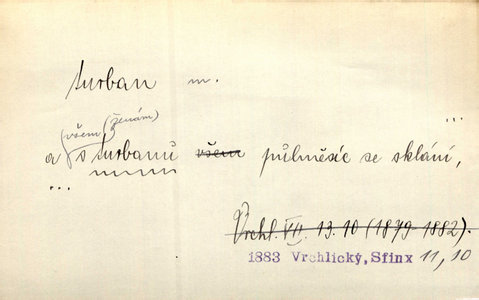 turban m.
(všem) (ženám)
a s turbanů všem půlměsíc se sklání, ...
...
Vrchl. VII. 13. 10 (1879-1882).
1883 Vrchlický, Sfinx 11, 10